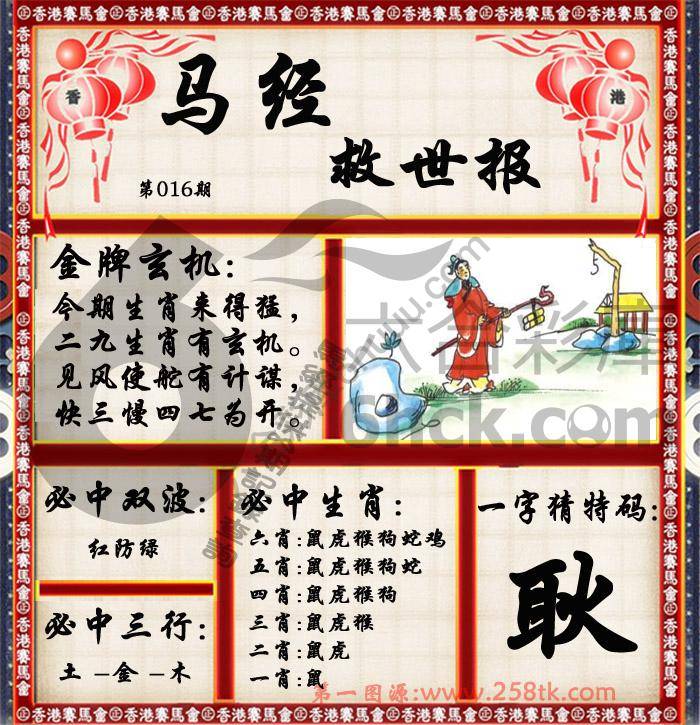 香港賽馬會
香
港
马经
救世报
第016期
金牌玄机:
今期生肖来得猛,
二九生肖有玄机。
见风使舵有计谋,
快三慢四七为开。
六合彩库
6hck.com
必中双波:
红防绿
必中三行:
土-金-木
必中生肖:
六肖:鼠虎猴狗蛇鸡
五肖:鼠虎猴狗蛇
四肖:鼠虎猴狗
三肖:鼠虎猴
二肖:鼠虎
一肖:鼠
一字猜特码:
耿
第一图源:www.258tk.com